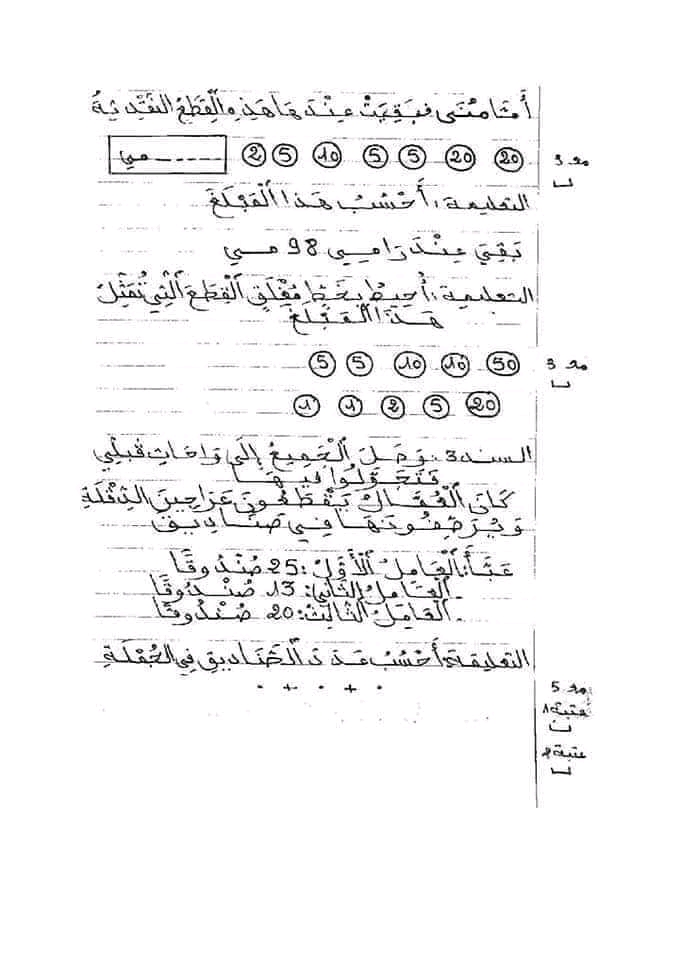 أَمَّا مُنَى فَبَقِيَتْ عِنْدَهَا هَذِهِ الْقِطَعُ النَّقْدِيَّةُ
20 20 5 5 10 5 2 ------ مي
مع 3
التعليمة: أَحْسُبُ هَذَا الْمَبْلَغَ
بَقِيَ عِنْدَ رَامِي 98 مي
التعليمة: أُحِيطُ بِخَطٍّ مُغْلَقٍ الْقِطَعَ الَّتِي تُمَثِّلُ
هَذَا الْمَبْلَغَ
50 10 10 5 5
مع 3
20 5 2 1 1
السند 3: وَصَلَ الْجَمِيعُ إِلَى وَاحَاتِ قْبِلِّي
فَتَجَوَّلُوا فِيهَا
كَانَ الْعُمَّالُ يَقْطَعُونَ عَرَاجِينَ الدِّقْلَةِ
وَيُرَصِّفُونَهَا فِي صَنَادِيقَ
عَبَّأَ: الْعَامِلُ الْأَوَّلُ: 25 صُنْدُوقًا
- الْعَامِلُ الثَّانِي: 13 صُنْدُوقًا
- الْعَامِلُ الثَّالِثُ: 20 صُنْدُوقًا
التعليمة: أَحْسُبُ عَدَدَ الصَّنَادِيقِ فِي الْجُمْلَةِ
. + . + .
مع 5
عتبة 1
عتبة 2